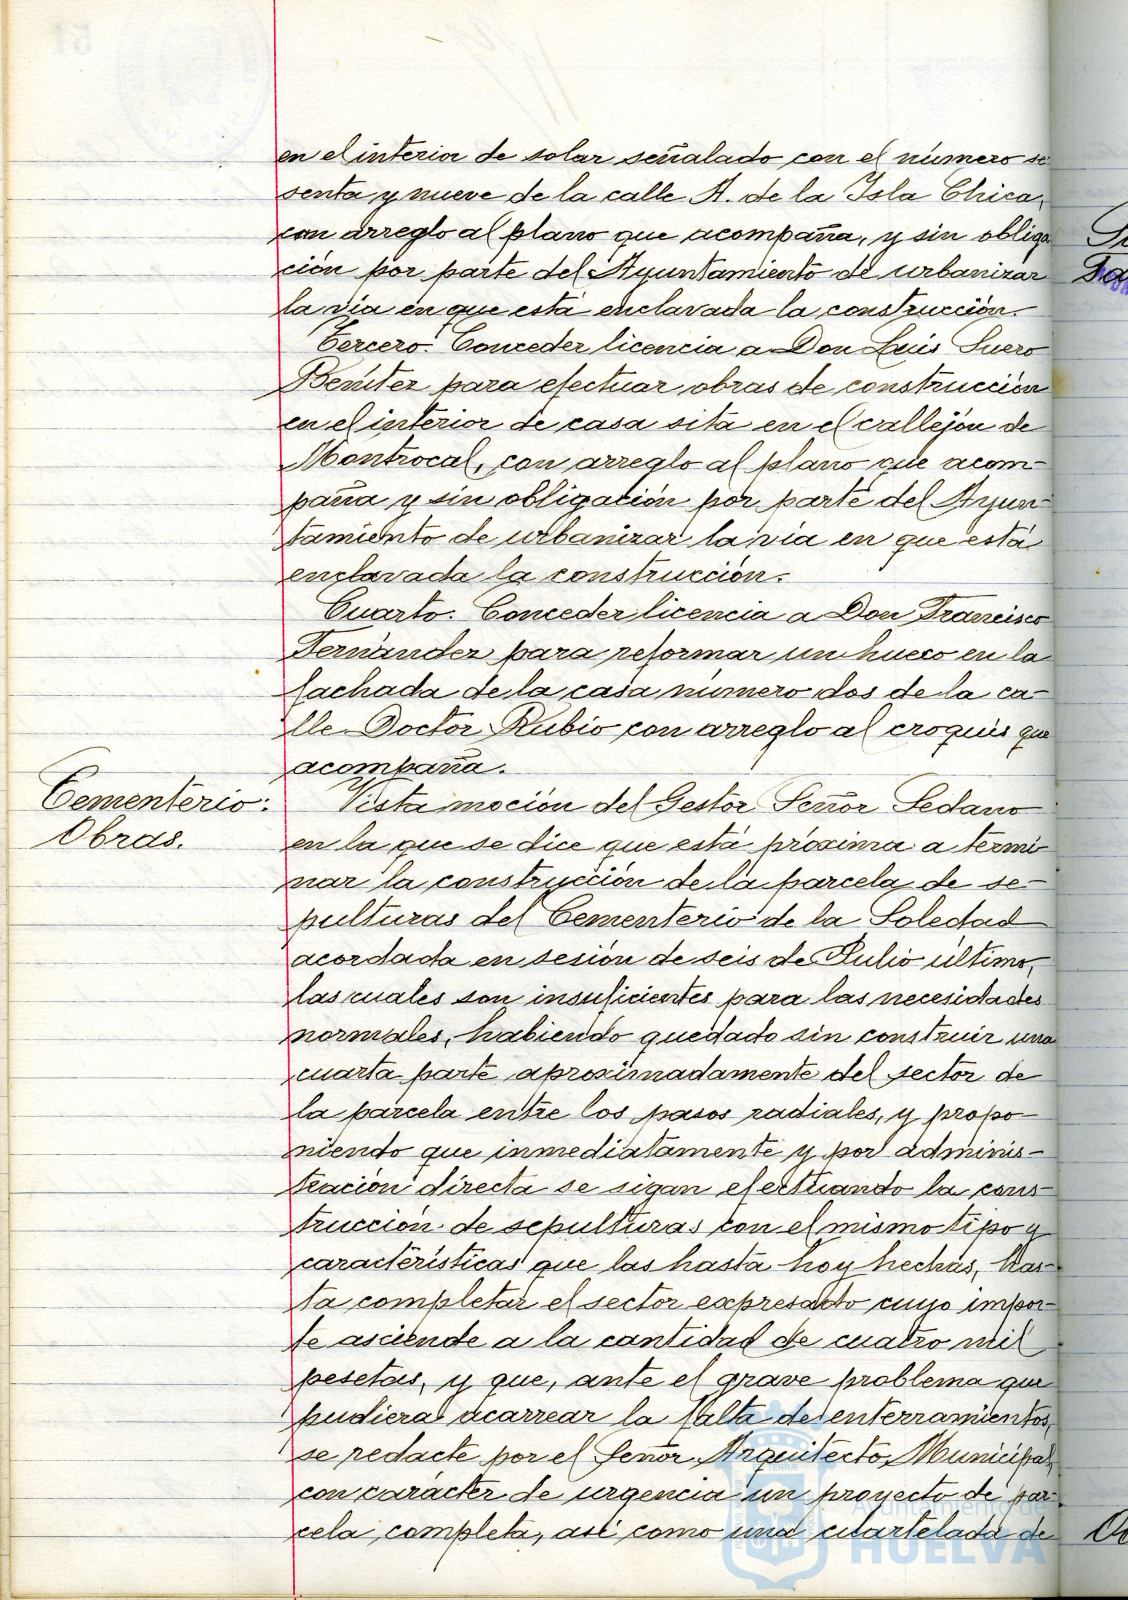 en el interior de solar señalado con el número se
senta y nueve de la calle A. de la Isla Chica,
con arreglo al plano que acompaña, y sin obliga
ción por parte del Ayuntamiento de urbanizar
la vía en que está enclavada la construcción.
Tercero. Conceder licencia a Don Luis Suero
Benítez para efectuar obras de construcción
en el interior de casa sita en el callejón de
Montrocal, con arreglo al plano que acom-
paña y sin obligación por parte del Ayun-
tamiento de urbanizar la vía en que está
enclavada la construcción.
Cuarto. Conceder licencia a Don Francisco
Fernández para reformar un hueco en la
fachada de la casa número dos de la ca-
lle Doctor Rubio con arreglo al croquis que
acompaña.
Cementerio:
Obras.
Vista moción del Gestor Señor Sedano
en la que se dice que está próxima a termi
nar la construcción de la parcela de se-
pulturas del Cementerio de la Soledad
acordada en sesión de seis de Julio último,
las cuales son insuficientes para las necesidades
normales, habiendo quedado sin construir una
cuarta parte aproximadamente del sector de
la parcela entre los pasos radiales, y propo-
niendo que inmediatamente y por adminis-
tración directa se sigan efectuando la cons-
trucción de sepulturas con el mismo tipo y
características que las hasta hoy hechas, has-
ta completar el sector expresado cuyo impor-
te asciende a la cantidad de cuatro mil
pesetas, y que, ante el grave problema que
pudiera acarrear la falta de enterramientos,
se redacte por el Señor Arquitecto Municipal,
con carácter de urgencia un proyecto de par-
cela completa, así como una cuartelada de
Ayuntamiento de
HUELVA